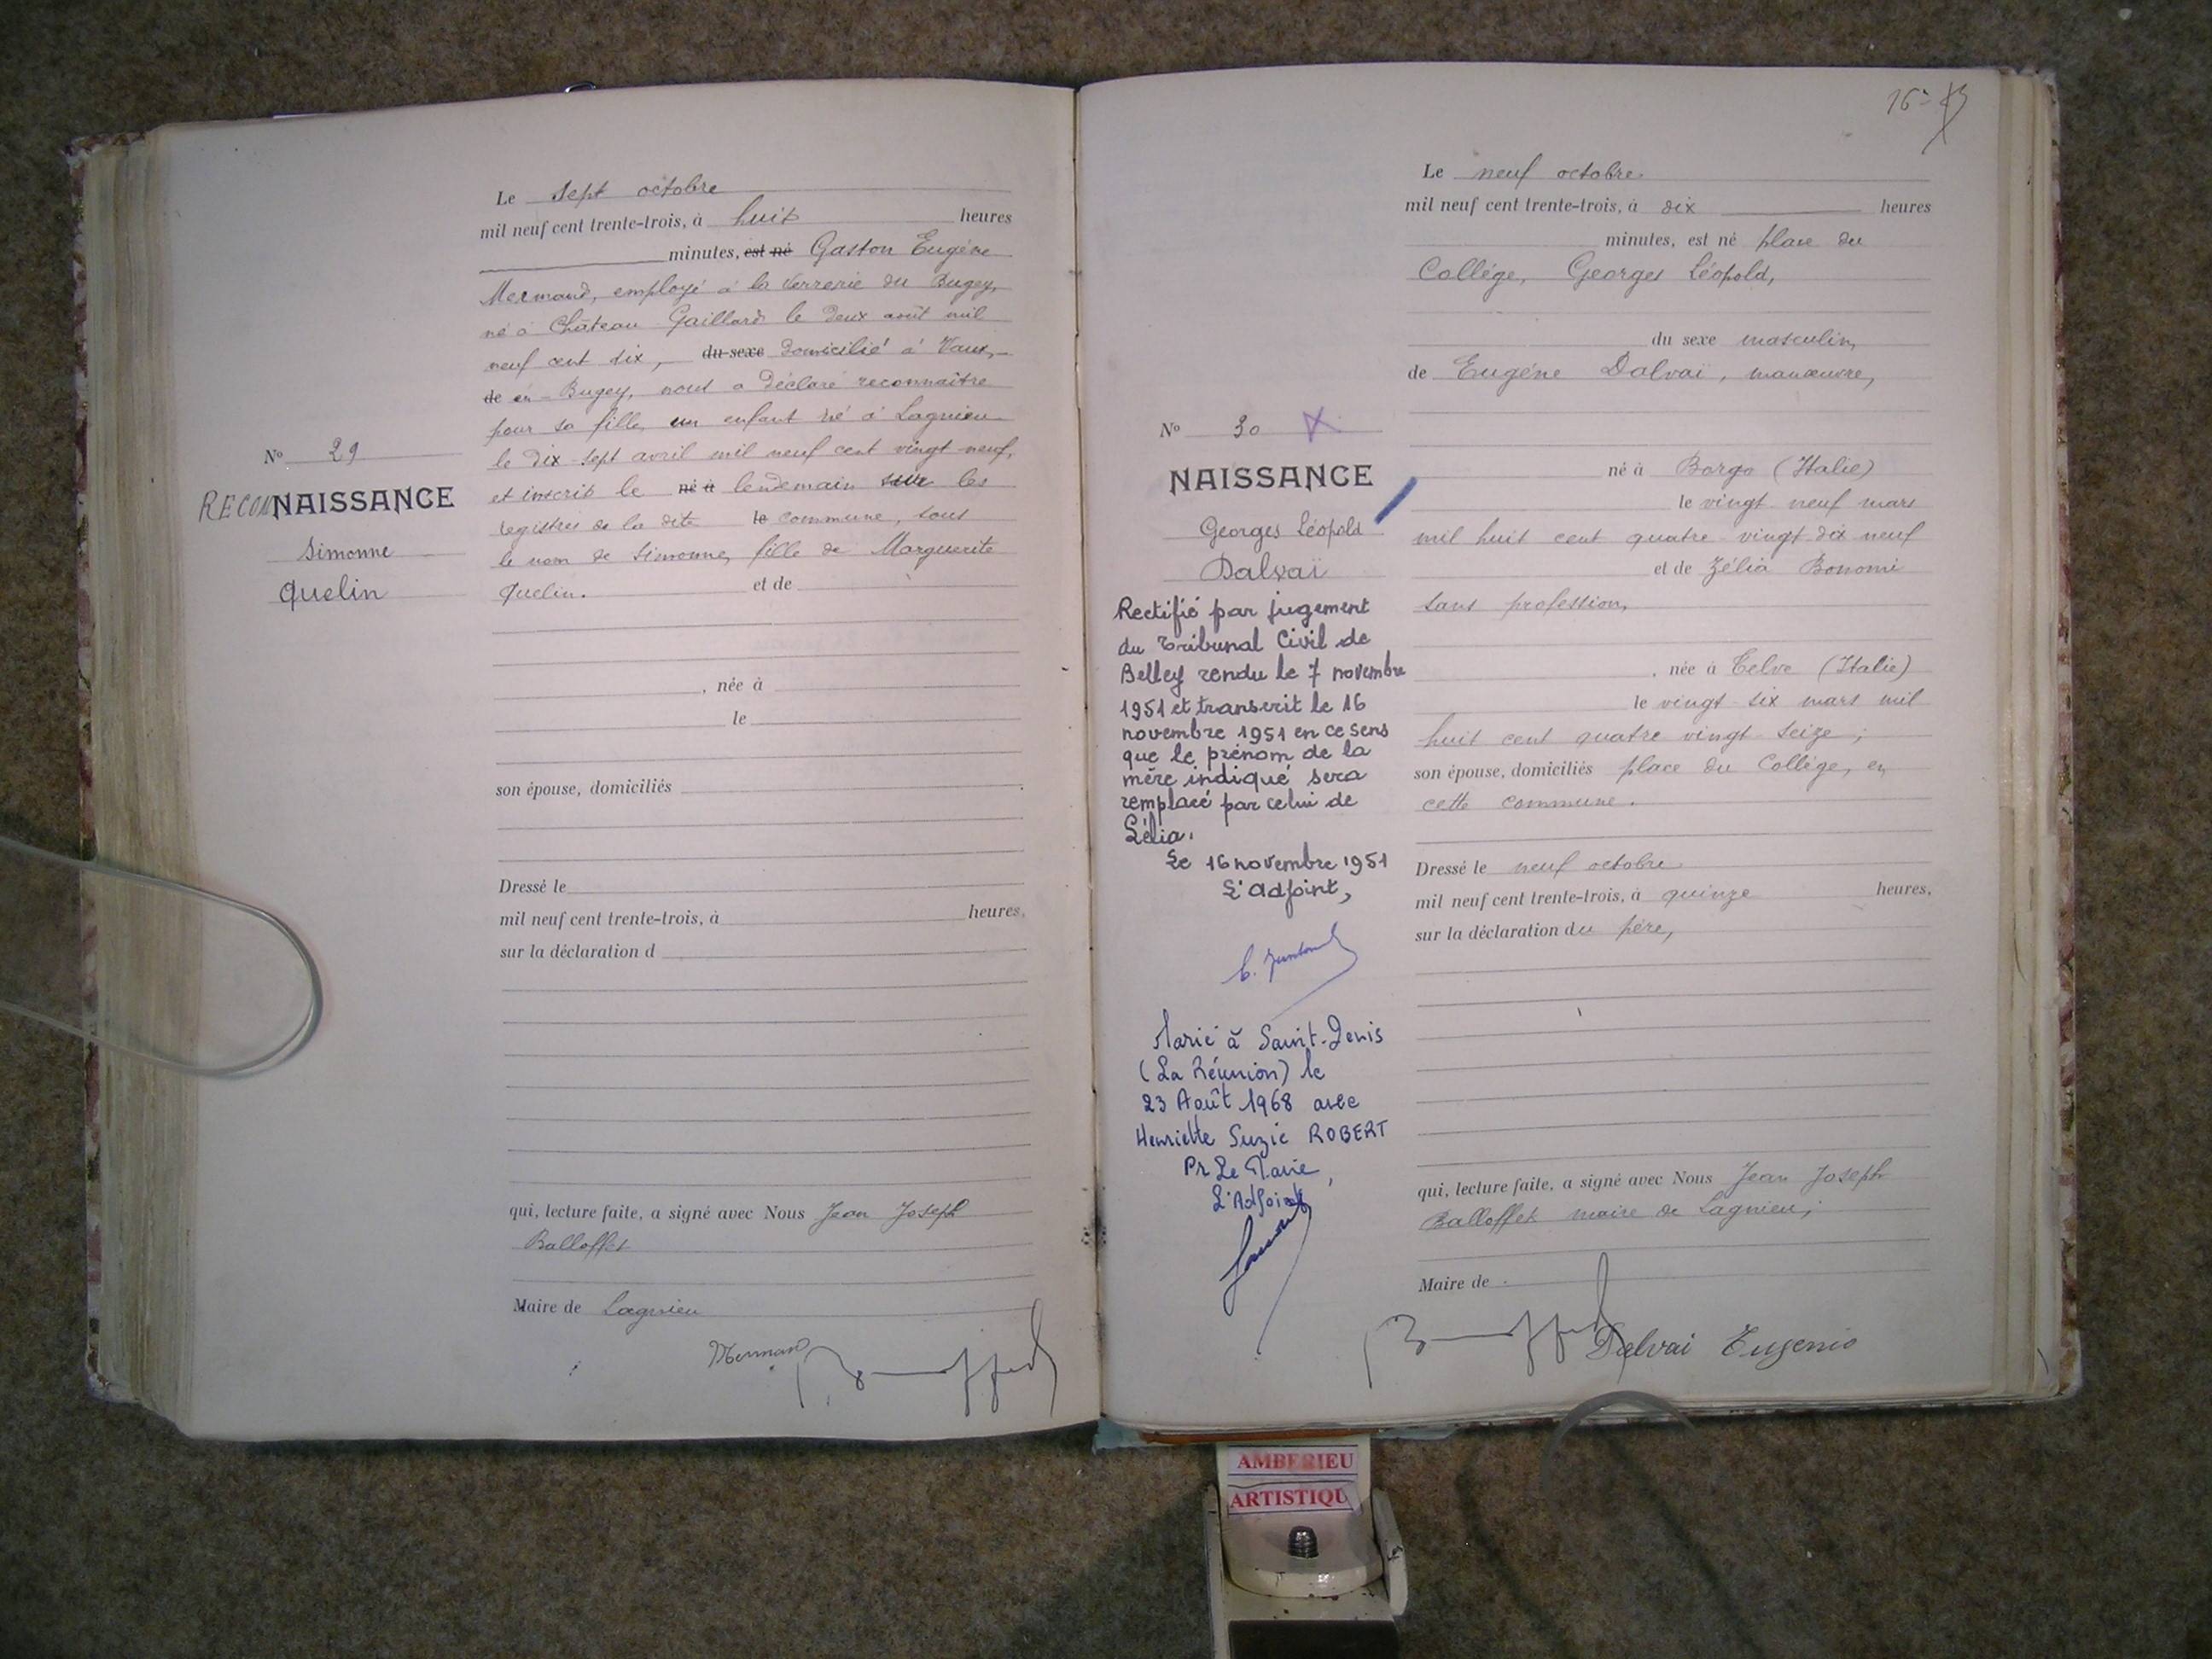 N° 29
RECONNAISSANCE
Simonne
Quelin
Le sept octobre
mil neuf cent trente-trois, à huit heures
minutes, est né Gaston Eugène
Mermand, employé à la Verrerie du Bugey,
né à Château Gaillard le deux août mil
neuf cent dix, du sexe domicilié à Vaux,
de en-Bugey, nous a déclaré reconnaître
pour sa fille, un enfant né à Lagnieu
le dix-sept avril mil neuf cent vingt-neuf,
et inscrit le né à lendemain sur les
registres de la dite le commune, sous
le nom de Simonne, fille de Marguerite
Quelin. et de
, née à
le
son épouse, domiciliés
Dressé le
mil neuf cent trente-trois, à heures,
sur la déclaration d
qui, lecture faite, a signé avec Nous Jean Joseph
Balloffet
Maire de Lagnieu
Mermand
16
N° 30 X
NAISSANCE
Georges Léopold
Dalvaï
Rectifié par jugement
du Tribunal Civil de
Belley rendu le 7 novembre
1951 et transcrit le 16
novembre 1951 en ce sens
que le prénom de la
mère indiqué sera
remplacé par celui de
Lélia.
Le 16 novembre 1951
L'adjoint,
Marié à Saint-Denis
(La Réunion) le
23 Août 1968 avec
Henriette Suzie ROBERT
Pr Le Maire,
L'Adjoint
Le neuf octobre
mil neuf cent trente-trois, à dix heures
minutes, est né place du
Collège, Georges Léopold,
du sexe masculin,
de Eugène Dalvaï, manœuvre,
né à Borgo (Italie)
le vingt neuf mars
mil huit cent quatre-vingt-dix neuf
et de Zélia Bonomi
sans profession,
, née à Telve (Italie)
le vingt six mars mil
huit cent quatre vingt seize ;
son épouse, domiciliés place du Collège, en
cette commune.
Dressé le neuf octobre
mil neuf cent trente-trois, à quinze heures,
sur la déclaration du père,
qui, lecture faite, a signé avec Nous Jean Joseph
Balloffet maire de Lagnieu ;
Maire de
Dalvai Eugenio
AMBERIEU
ARTISTIQU